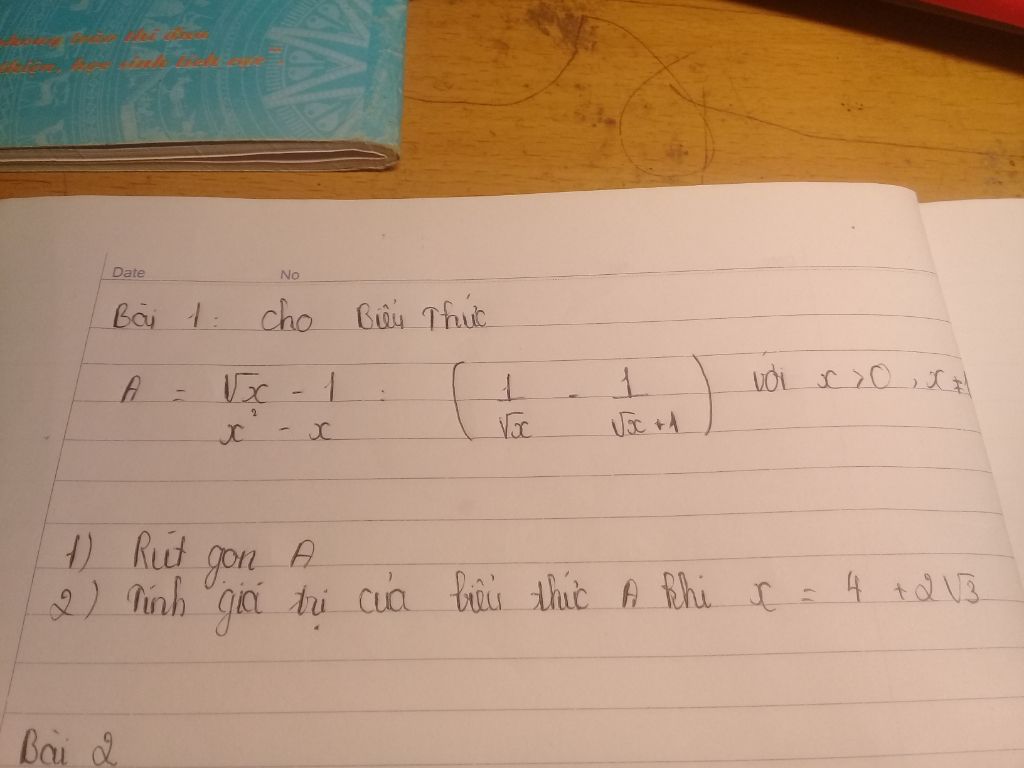 phong trào thi đua
thiện, học sinh tích cực".
Date No
Bài 1: Cho Biểu Thức
A = \frac{\sqrt{x} - 1}{x^2 - x} : \left( \frac{1}{\sqrt{x}} - \frac{1}{\sqrt{x} + 1} \right) với x > 0, x ≠ 1
1) Rút gọn A
2) Tính giá trị của biểu thức A khi x = 4 + 2√3
Bài 2